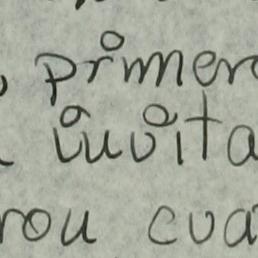 primero
invita
ron cua